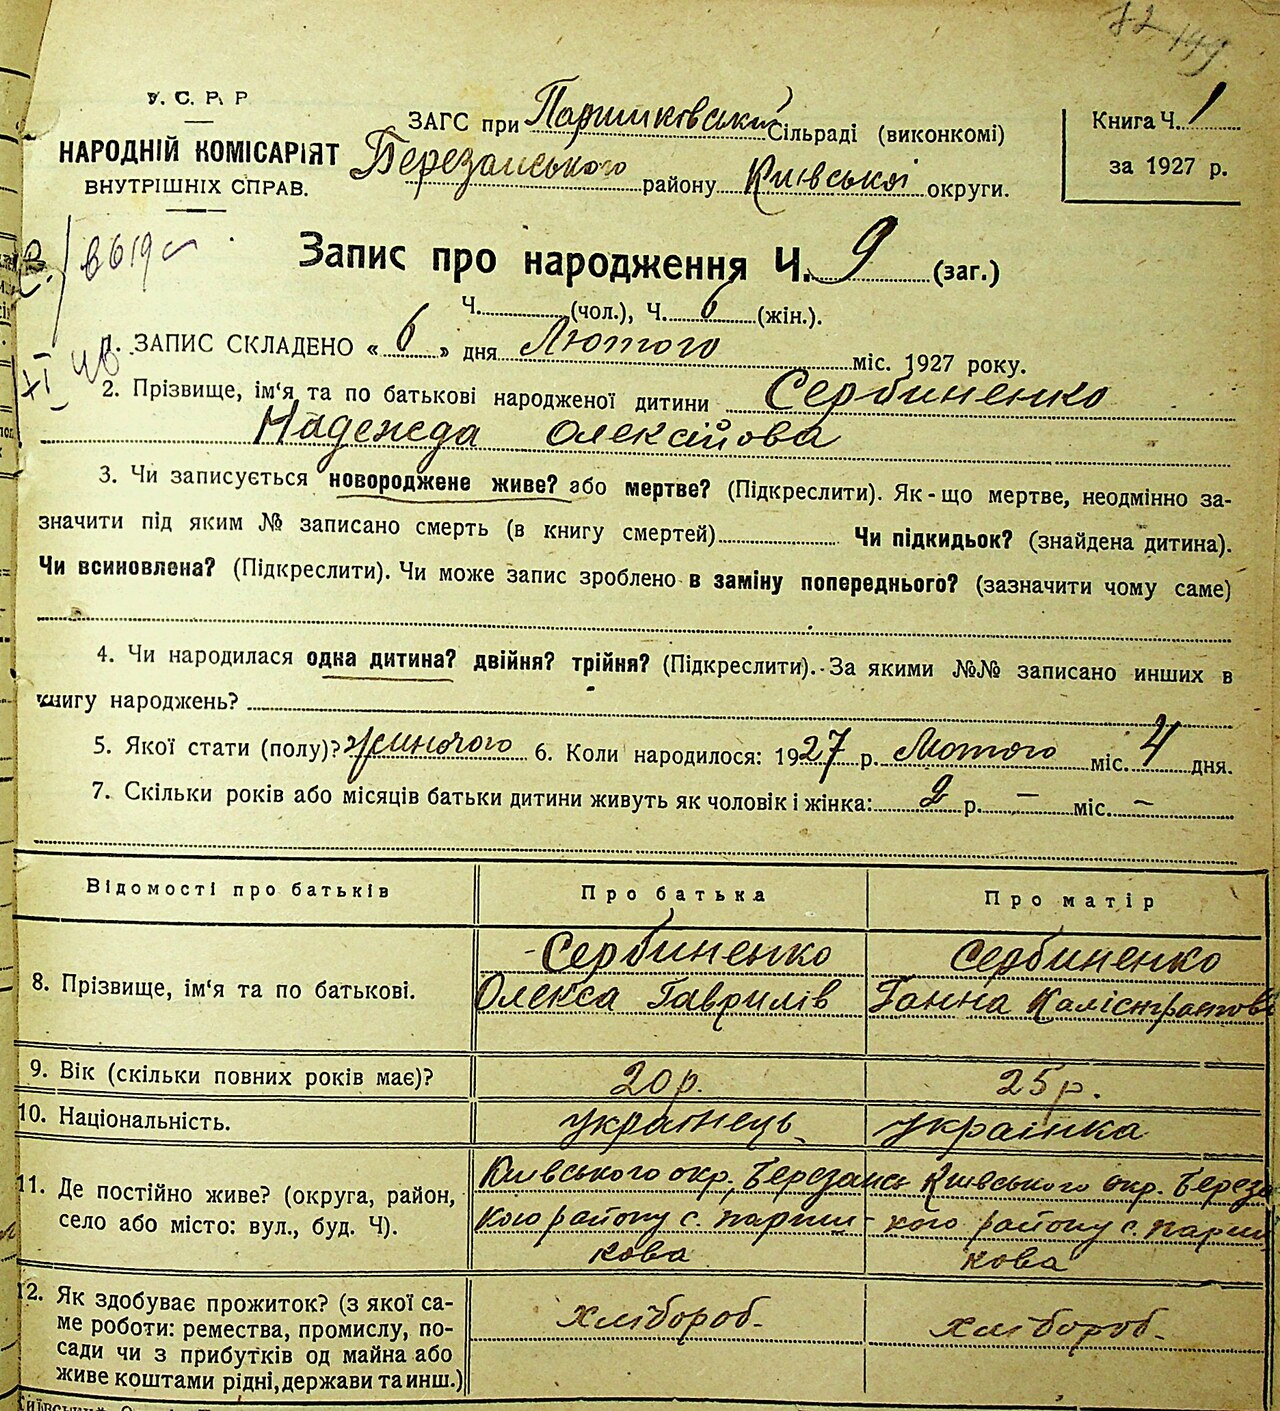 72 149
У. С. Р. Р
НАРОДНІЙ КОМІСАРІЯТ
ВНУТРІШНІХ СПРАВ.
ЗАГС при Паришковській Сільраді (виконкомі)
Березанського району Київської округи.
Книга Ч. 1
за 1927 р.
Запис про народження Ч. 9 (заг.)
Ч. (чол.), Ч. 6 (жін.).
1. ЗАПИС СКЛАДЕНО « 6 » дня Лютого міс. 1927 року.
2. Прізвище, ім‘я та по батькові народженої дитини Сербиненко
Надежда Олексійова
3. Чи записується новороджене живе? або мертве? (Підкреслити). Як-що мертве, неодмінно за-
значити під яким № записано смерть (в книгу смертей) Чи підкидьок? (знайдена дитина).
Чи всиновлена? (Підкреслити). Чи може запис зроблено в заміну попереднього? (зазначити чому саме)
4. Чи народилася одна дитина? двійня? трійня? (Підкреслити). За якими №№ записано инших в
книгу народжень?
5. Якої стати (полу)? жиночого 6. Коли народилося: 1927 р. Лютого міс. 4 дня.
7. Скільки років або місяців батьки дитини живуть як чоловік і жінка: 2 р. — міс. —
Відомості про батьків Про батька Про матір
8. Прізвище, ім‘я та по батькові.
Сербиненко
Олекса Гаврилів
Сербиненко
Ганна Калістратові
9. Вік (скільки повних років має)? 20 р. 25 р.
10. Національність. українець українка
11. Де постійно живе? (округа, район,
село або місто: вул., буд. Ч).
Київського окр. Березанс
кого району с. париш-
кова
Київського окр. Береза
кого району с. париш
кова
12. Як здобуває прожиток? (з якої са-
ме роботи: ремества, промислу, по-
сади чи з прибутків од майна або
живе коштами рідні, держави та инш.)
хлібороб.
хлібороб.